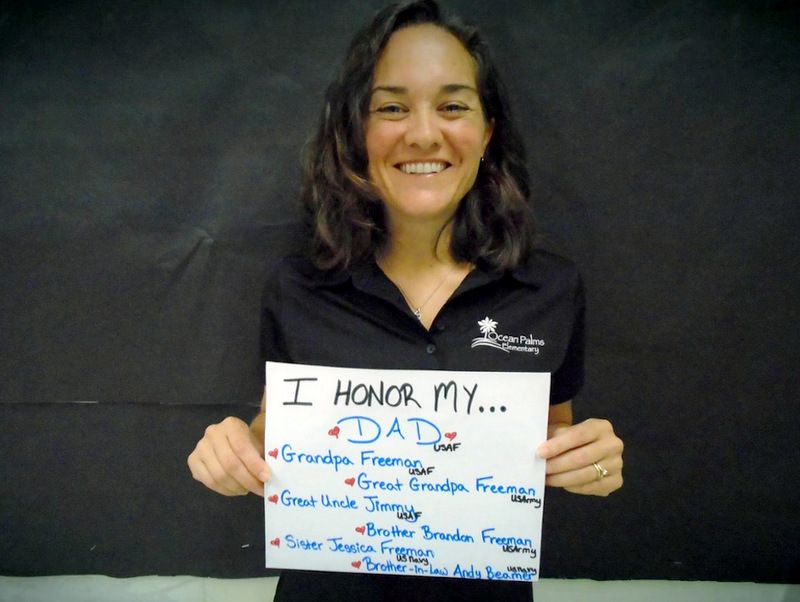 Ocean Palms
Elementary
I HONOR MY...
DAD
USAF
Grandpa Freeman
USAF
Great Grandpa Freeman
USArmy
Great Uncle Jimmy
USAF
Brother Brandon Freeman
USArmy
Sister Jessica Freeman
US Navy
Brother-in-Law Andy Beamer
US Navy